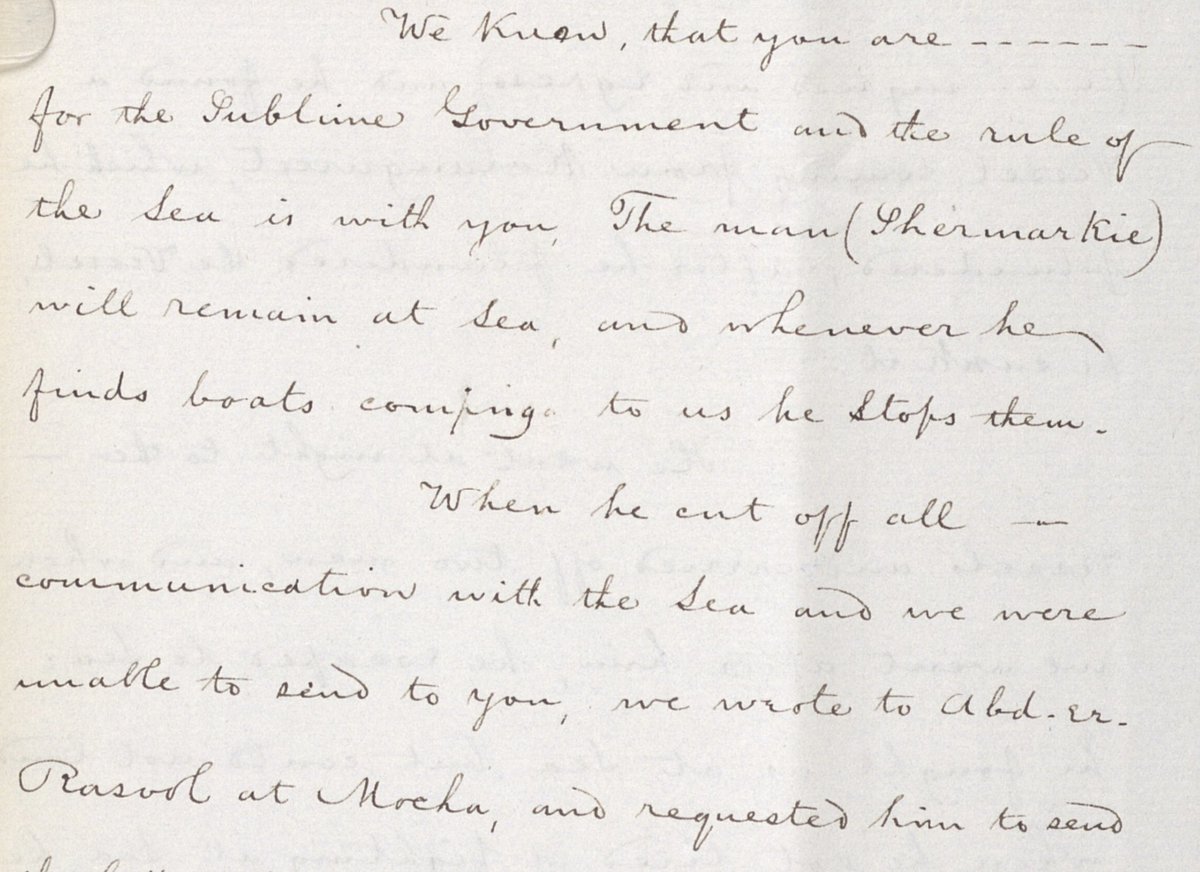 We Know, that you are ------
for the Sublime Government and the rule of
the Sea is with you, The man (Shermarkie)
will remain at Sea, and whenever he
finds boats comping to us he Stops them.
When he cut off all —
communication with the Sea and we were
unable to send to you, we wrote to Abd-er-
Rasool at Mocha, and requested him to send